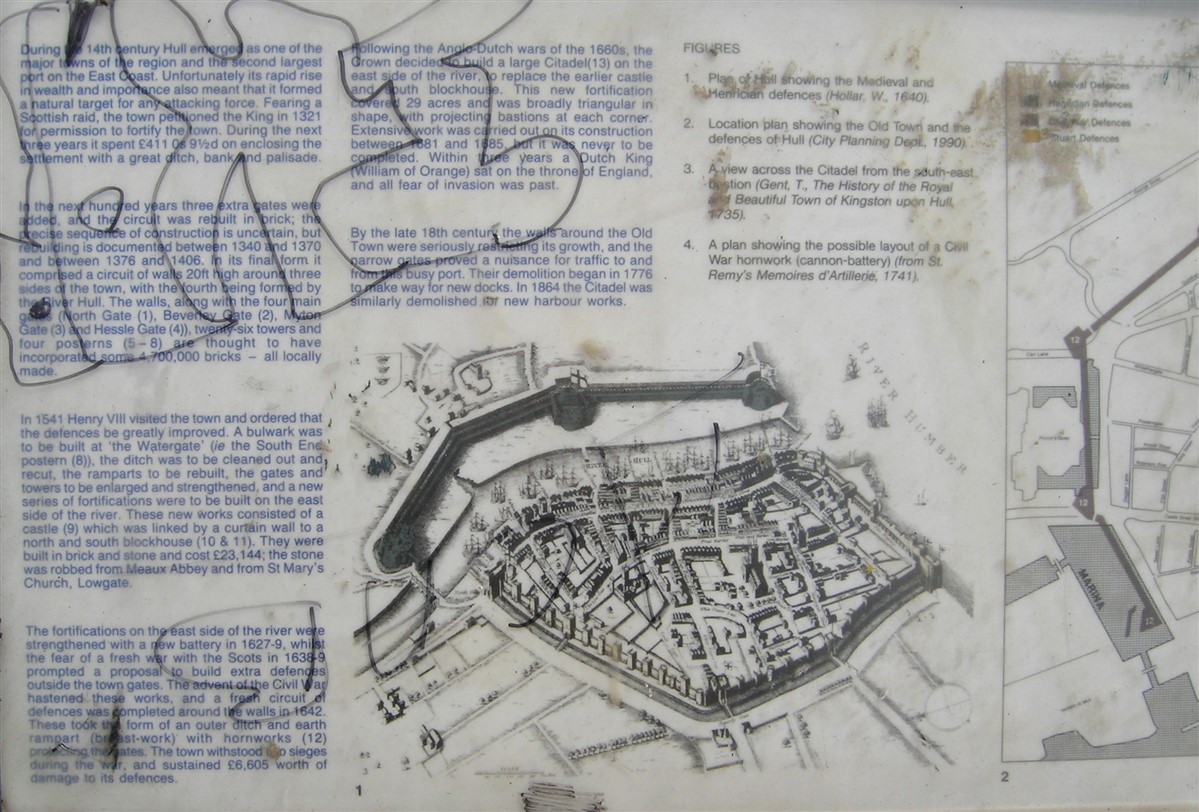 During the 14th century Hull emerged as one of the
major towns of the region and the second largest
port on the East Coast. Unfortunately its rapid rise
in wealth and importance also meant that it formed
a natural target for any attacking force. Fearing a
Scottish raid, the town petitioned the King in 1321
for permission to fortify the town. During the next
three years it spent £411 0s 9½d on enclosing the
settlement with a great ditch, bank and palisade.
In the next hundred years three extra gates were
added, and the circuit was rebuilt in brick; the
precise sequence of construction is uncertain, but
rebuilding is documented between 1340 and 1370
and between 1376 and 1406. In its final form it
comprised a circuit of walls 20ft high around three
sides of the town, with the fourth being formed by
the River Hull. The walls, along with the four main
gates (North Gate (1), Beverley Gate (2), Myton
Gate (3) and Hessle Gate (4)), twenty-six towers and
four posterns (5–8) are thought to have
incorporated some 4,700,000 bricks – all locally
made.
In 1541 Henry VIII visited the town and ordered that
the defences be greatly improved. A bulwark was
to be built at 'the Watergate' (ie the South End
postern (8)), the ditch was to be cleaned out and
recut, the ramparts to be rebuilt, the gates and
towers to be enlarged and strengthened, and a new
series of fortifications were to be built on the east
side of the river. These new works consisted of a
castle (9) which was linked by a curtain wall to a
north and south blockhouse (10 & 11). They were
built in brick and stone and cost £23,144; the stone
was robbed from Meaux Abbey and from St Mary's
Church, Lowgate.
The fortifications on the east side of the river were
strengthened with a new battery in 1627-9, whilst
the fear of a fresh war with the Scots in 1638-9
prompted a proposal to build extra defences
outside the town gates. The advent of the Civil War
hastened these works, and a fresh circuit of
defences was completed around the walls in 1642.
These took the form of an outer ditch and earth
rampart (breast-work) with hornworks (12)
protecting the gates. The town withstood two sieges
during the war, and sustained £6,605 worth of
damage to its defences.
Following the Anglo-Dutch wars of the 1660s, the
Crown decided to build a large Citadel(13) on the
east side of the river, to replace the earlier castle
and south blockhouse. This new fortification
covered 29 acres and was broadly triangular in
shape, with projecting bastions at each corner.
Extensive work was carried out on its construction
between 1681 and 1685, but it was never to be
completed. Within three years a Dutch King
(William of Orange) sat on the throne of England,
and all fear of invasion was past.
By the late 18th century the walls around the Old
Town were seriously restricting its growth, and the
narrow gates proved a nuisance for traffic to and
from this busy port. Their demolition began in 1776
to make way for new docks. In 1864 the Citadel was
similarly demolished for new harbour works.
FIGURES
1. Plan of Hull showing the Medieval and
Henrician defences (Hollar, W., 1640).
2. Location plan showing the Old Town and the
defences of Hull (City Planning Dept., 1990).
3. A view across the Citadel from the south-east
bastion (Gent, T., The History of the Royal
and Beautiful Town of Kingston upon Hull,
1735).
4. A plan showing the possible layout of a Civil
War hornwork (cannon-battery) (from St.
Remy's Memoires d'Artillerie, 1741).
RIVER HUMBER
RIVER HULL
1
Medieval Defences
Henrician Defences
Civil War Defences
Stuart Defences
12
12
MARINA
12
2